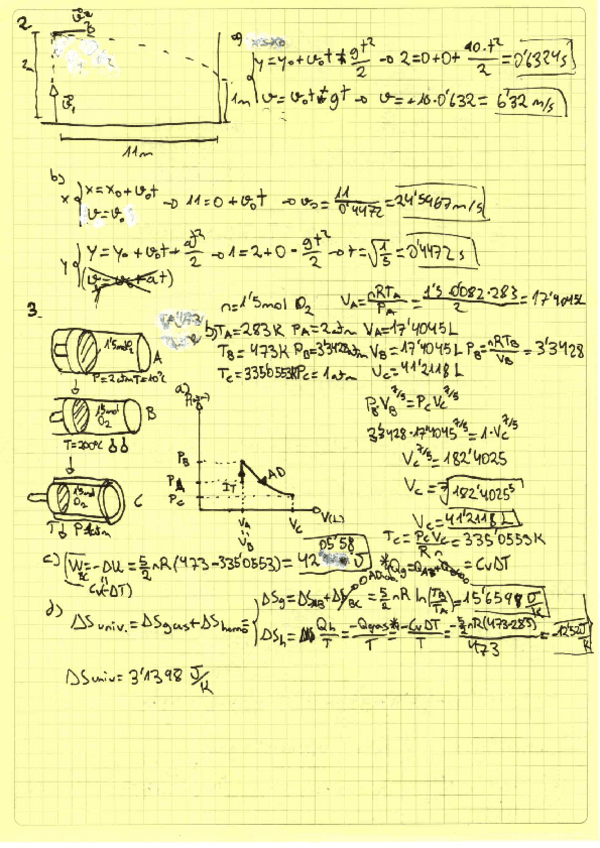 2
2m
1m
11m
a)
y=y₀+v₀t+gt²/2 → 2=0+0+10·t²/2=0'6324s
v=v₀t+gt → v=+10·0'632=6'32 m/s
b)
x { x=x₀+v₀t → 11=0+v₀t → v₀=11/0'4472=24'5967m/s
v=v₀
y { y=y₀+v₀t+at²/2 → 1=2+0-gt²/2 → t=√1/5=0'4472 s
(v=v₀+at)
3.
n=1'5mol O₂ V_A=nRT_A/P_A=1'5·0'082·283/2=17'4045L
b) T_A=283K P_A=2atm V_A=17'4045L
T_B=473K P_B=3'3428atm V_B=17'4045L P_B=nRT_B/V_B=3'3428
T_C=335'0553K P_C=1atm V_C=41'2118L
1'5mol O₂
A
P=2atm T=10ºC
1'5mol O₂
B
T=200ºC
1'5mol O₂
C
T↓ P 1atm
a)
P_B
P_A
P_C
IT
AD
V_A
V_B
V_C
V(L)
P_B V_B^7/5=P_C V_C^7/5
3'3428·17'4045^7/5=1·V_C^7/5
V_C^7/5=182'4025
V_C=⁷√182'4025⁵
V_C=41'2118L
T_C=P_C V_C/R n=335'0553K
c) W_BC=-ΔU=5/2 nR(473-335'0553)=4205'58 J
(C_vΔT)
d) ΔS univ.=ΔS gas+ΔS horno= {
ΔS_g=ΔS_AB+ΔS_BC=5/2 nR ln(T_B/T_A)=15'6598 J/K
ΔS_h=Q_h/T=-Q gas*/T=-C_vΔT/T=-5/2 nR(473-283)/473=-12'52 J/K
ΔS univ=3'1398 J/K